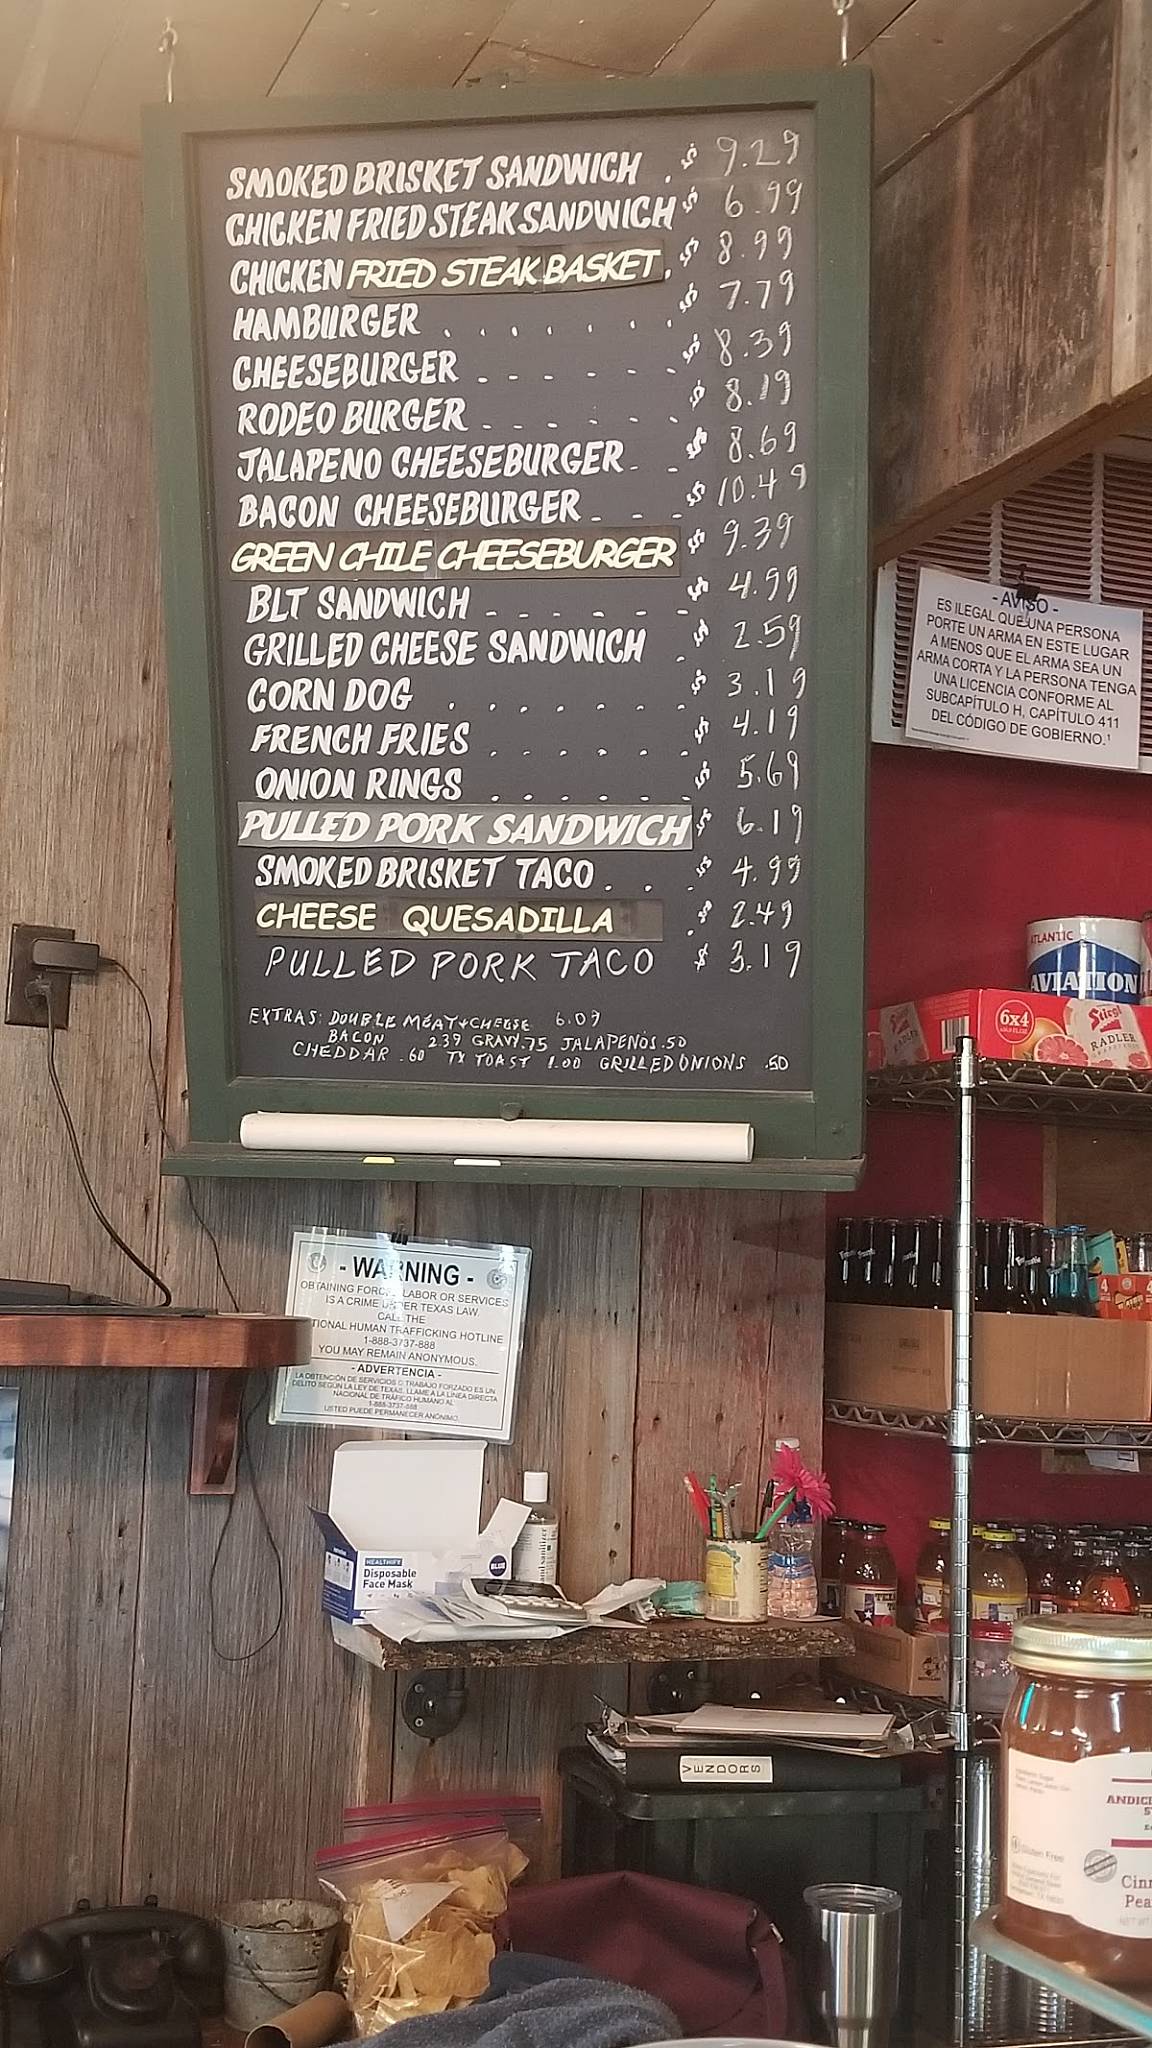 SMOKED BRISKET SANDWICH . $ 9.29
CHICKEN FRIED STEAK SANDWICH $ 6.99
CHICKEN FRIED STEAK BASKET . $ 8.99
HAMBURGER . . . . . . . $ 7.79
CHEESEBURGER - - - - - - $ 8.39
RODEO BURGER - - - - - - $ 8.19
JALAPENO CHEESEBURGER - - $ 8.69
BACON CHEESEBURGER - - - $ 10.49
GREEN CHILE CHEESEBURGER $ 9.39
BLT SANDWICH - - - - - - $ 4.99
GRILLED CHEESE SANDWICH . $ 2.59
CORN DOG . . . . . . . $ 3.19
FRENCH FRIES . . . . . . $ 4.19
ONION RINGS . . . . . . $ 5.69
PULLED PORK SANDWICH $ 6.19
SMOKED BRISKET TACO . . . $ 4.99
CHEESE QUESADILLA . $ 2.49
PULLED PORK TACO $ 3.19
EXTRAS: DOUBLE MEAT+CHEESE 6.09
BACON 2.39 GRAVY .75 JALAPENOS .50
CHEDDAR .60 TX TOAST 1.00 GRILLED ONIONS .50
- AVISO -
ES ILEGAL QUE UNA PERSONA
PORTE UN ARMA EN ESTE LUGAR
A MENOS QUE EL ARMA SEA UN
ARMA CORTA Y LA PERSONA TENGA
UNA LICENCIA CONFORME AL
SUBCAPÍTULO H, CAPÍTULO 411
DEL CÓDIGO DE GOBIERNO.¹
ATLANTIC
AVIATION
6x4
Stiegl
RADLER
Stiegl
RADLER
- WARNING -
OBTAINING FORCED LABOR OR SERVICES
IS A CRIME UNDER TEXAS LAW.
CALL THE
TIONAL HUMAN TRAFFICKING HOTLINE
1-888-3737-888
YOU MAY REMAIN ANONYMOUS.
- ADVERTENCIA -
LA OBTENCIÓN DE SERVICIOS O TRABAJO FORZADO ES UN
DELITO SEGÚN LA LEY DE TEXAS. LLAME A LA LÍNEA DIRECTA
NACIONAL DE TRÁFICO HUMANO AL
1-888-3737-888
USTED PUEDE PERMANECER ANÓNIMO.
HEALTHIFY
Disposable
Face Mask
BLUE
hand sanitizer
VENDORS
ANDIC
Gluten Free
Cinn
Pea
NET WT